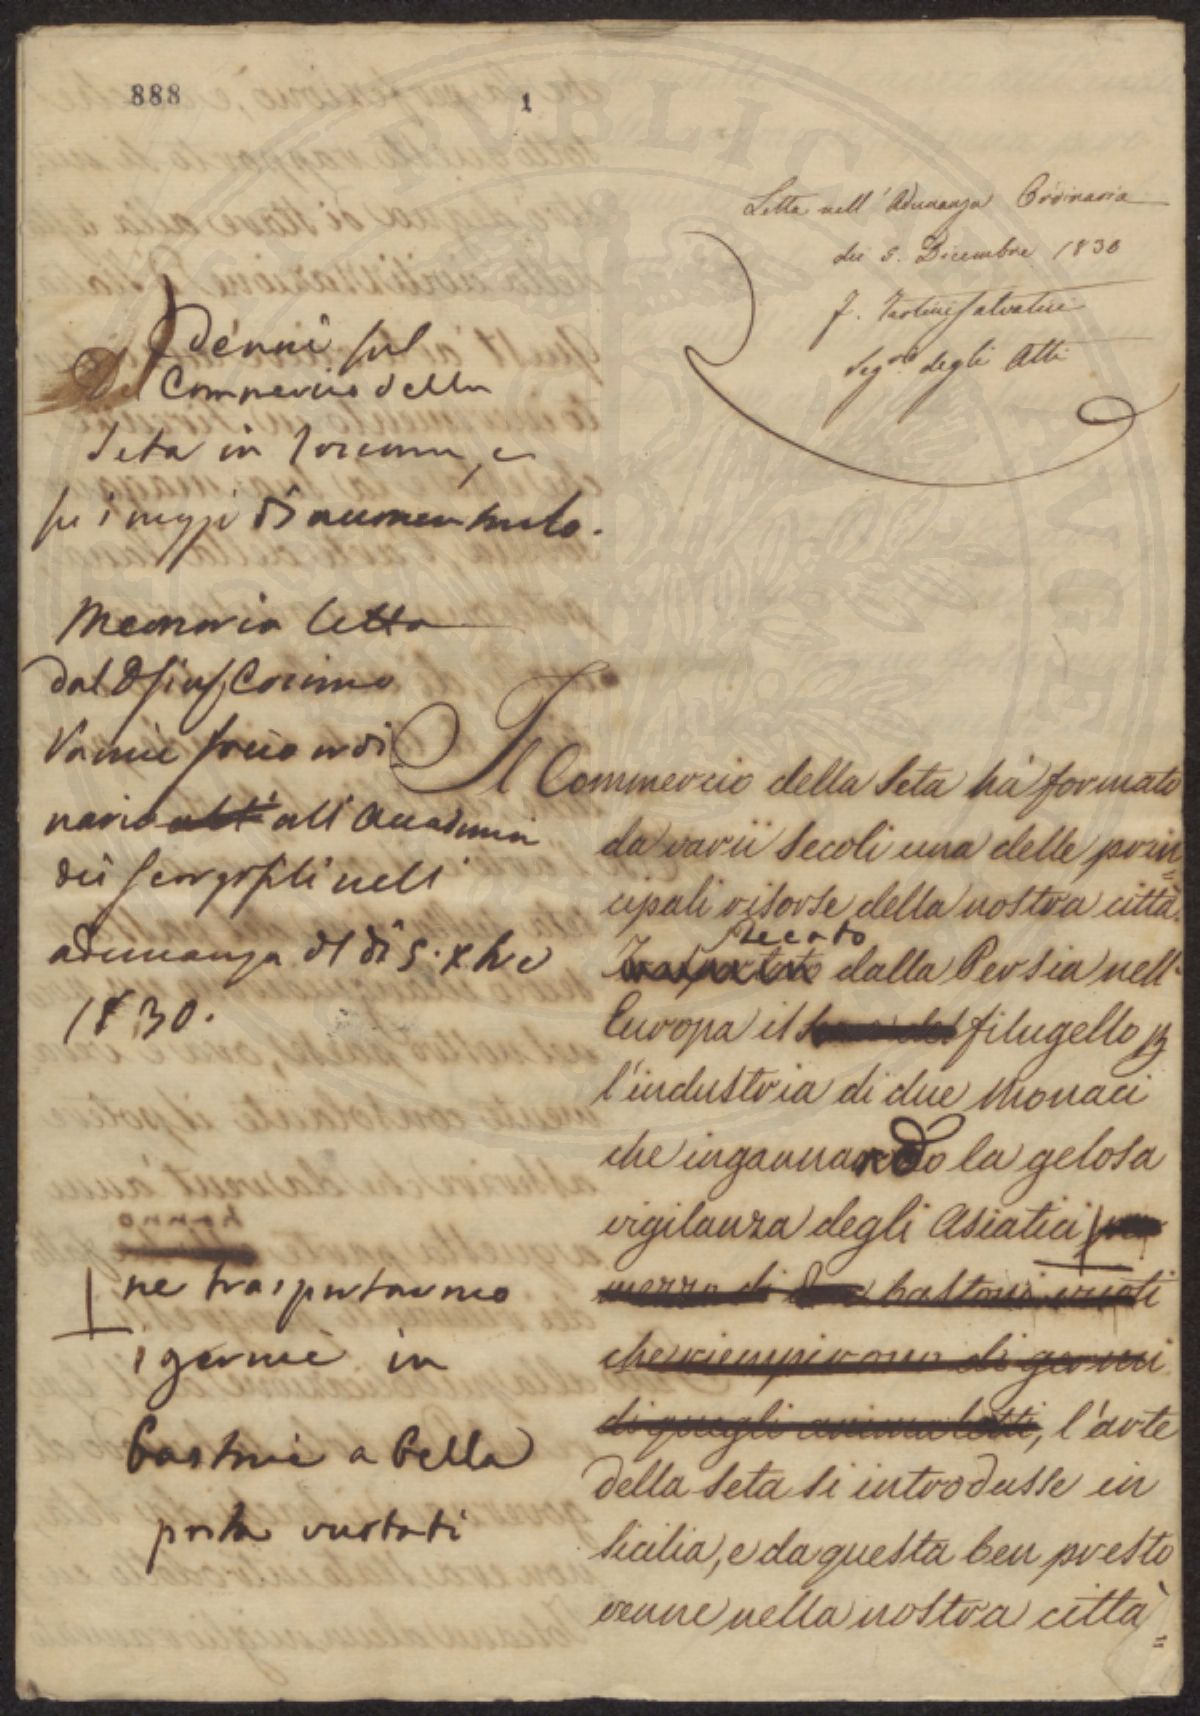 888
1
Letta nell'Adunanza Ordinaria
dei 5. Dicembre 1830
F. Tartini Salvatici
Seg.rio degli Atti
Cenni sul
Del Commercio della
Seta in Toscana, e
su i mezzi di aumentarlo.
Memoria letta
dal D. Gius. Cosimo
Vannii socio ordi
nario all'Accademia
dei Georgofili nell
adunanza del dì 5. Xbre
1830.
Il Commercio della Seta hà formato
da varii Secoli una delle prin=
cipali risorse della nostra città.
Recato
Trasportato dalla Persia nell'
Europa il filugello p
l'industria di due Monaci
che ingannando la gelosa
vigilanza degli Asiatici
mezzo di due bastoni vuoti
che riempirono di germi
di quegli animaletti, l'arte
della Seta si introdusse in
Sicilia, e da questa ben presto
venne nella nostra città=
hanno
ne trasportarono
i germi in
bastoni a bella
posta vuotati